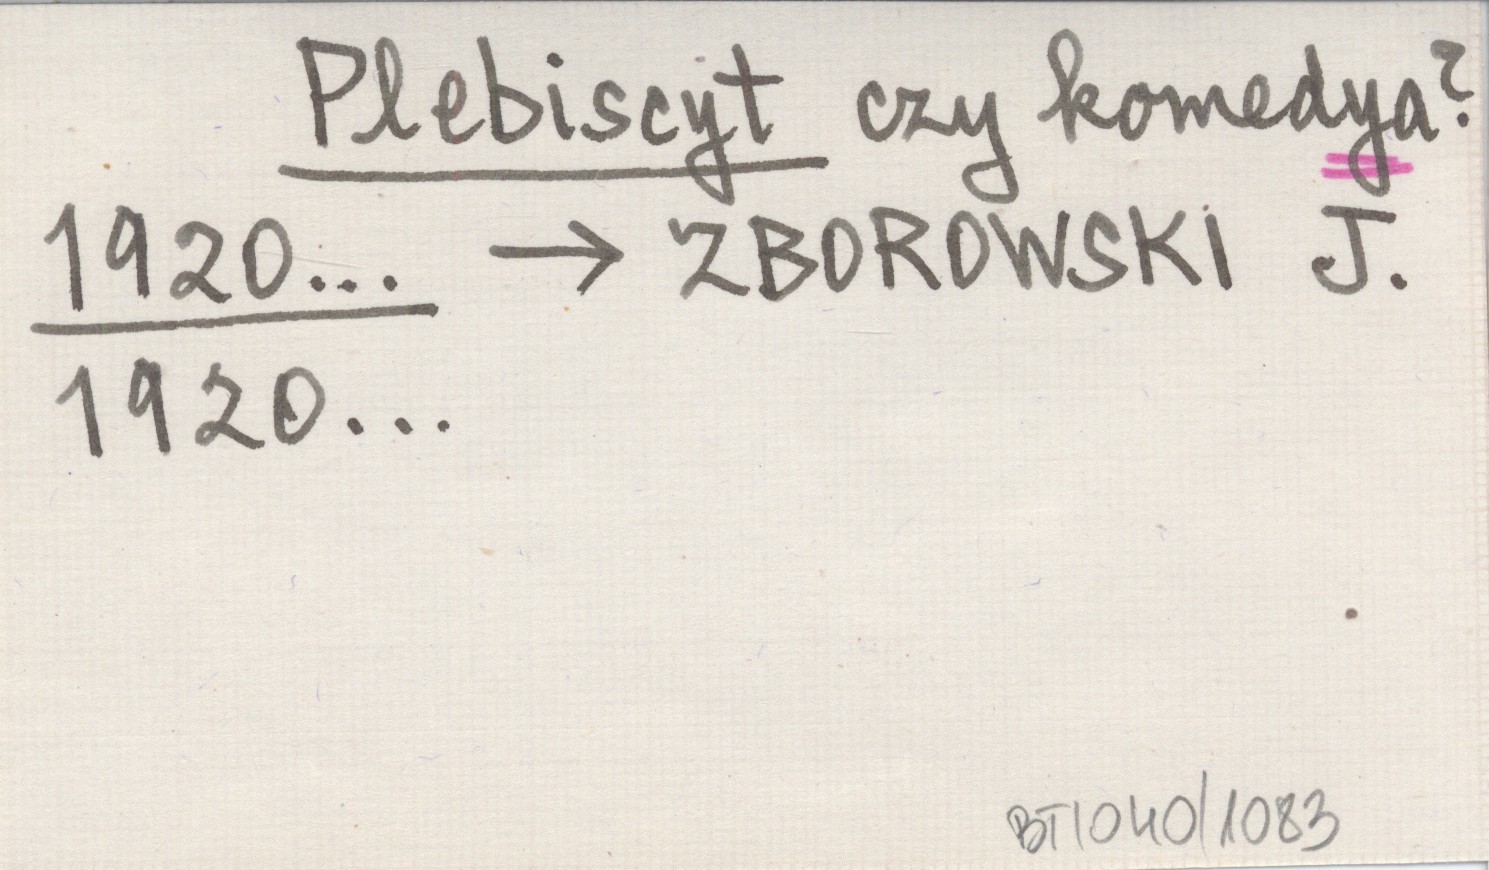 Plebiscyt czy komedya?
1920... → ZBOROWSKI J.
1920...
BT/040/1083